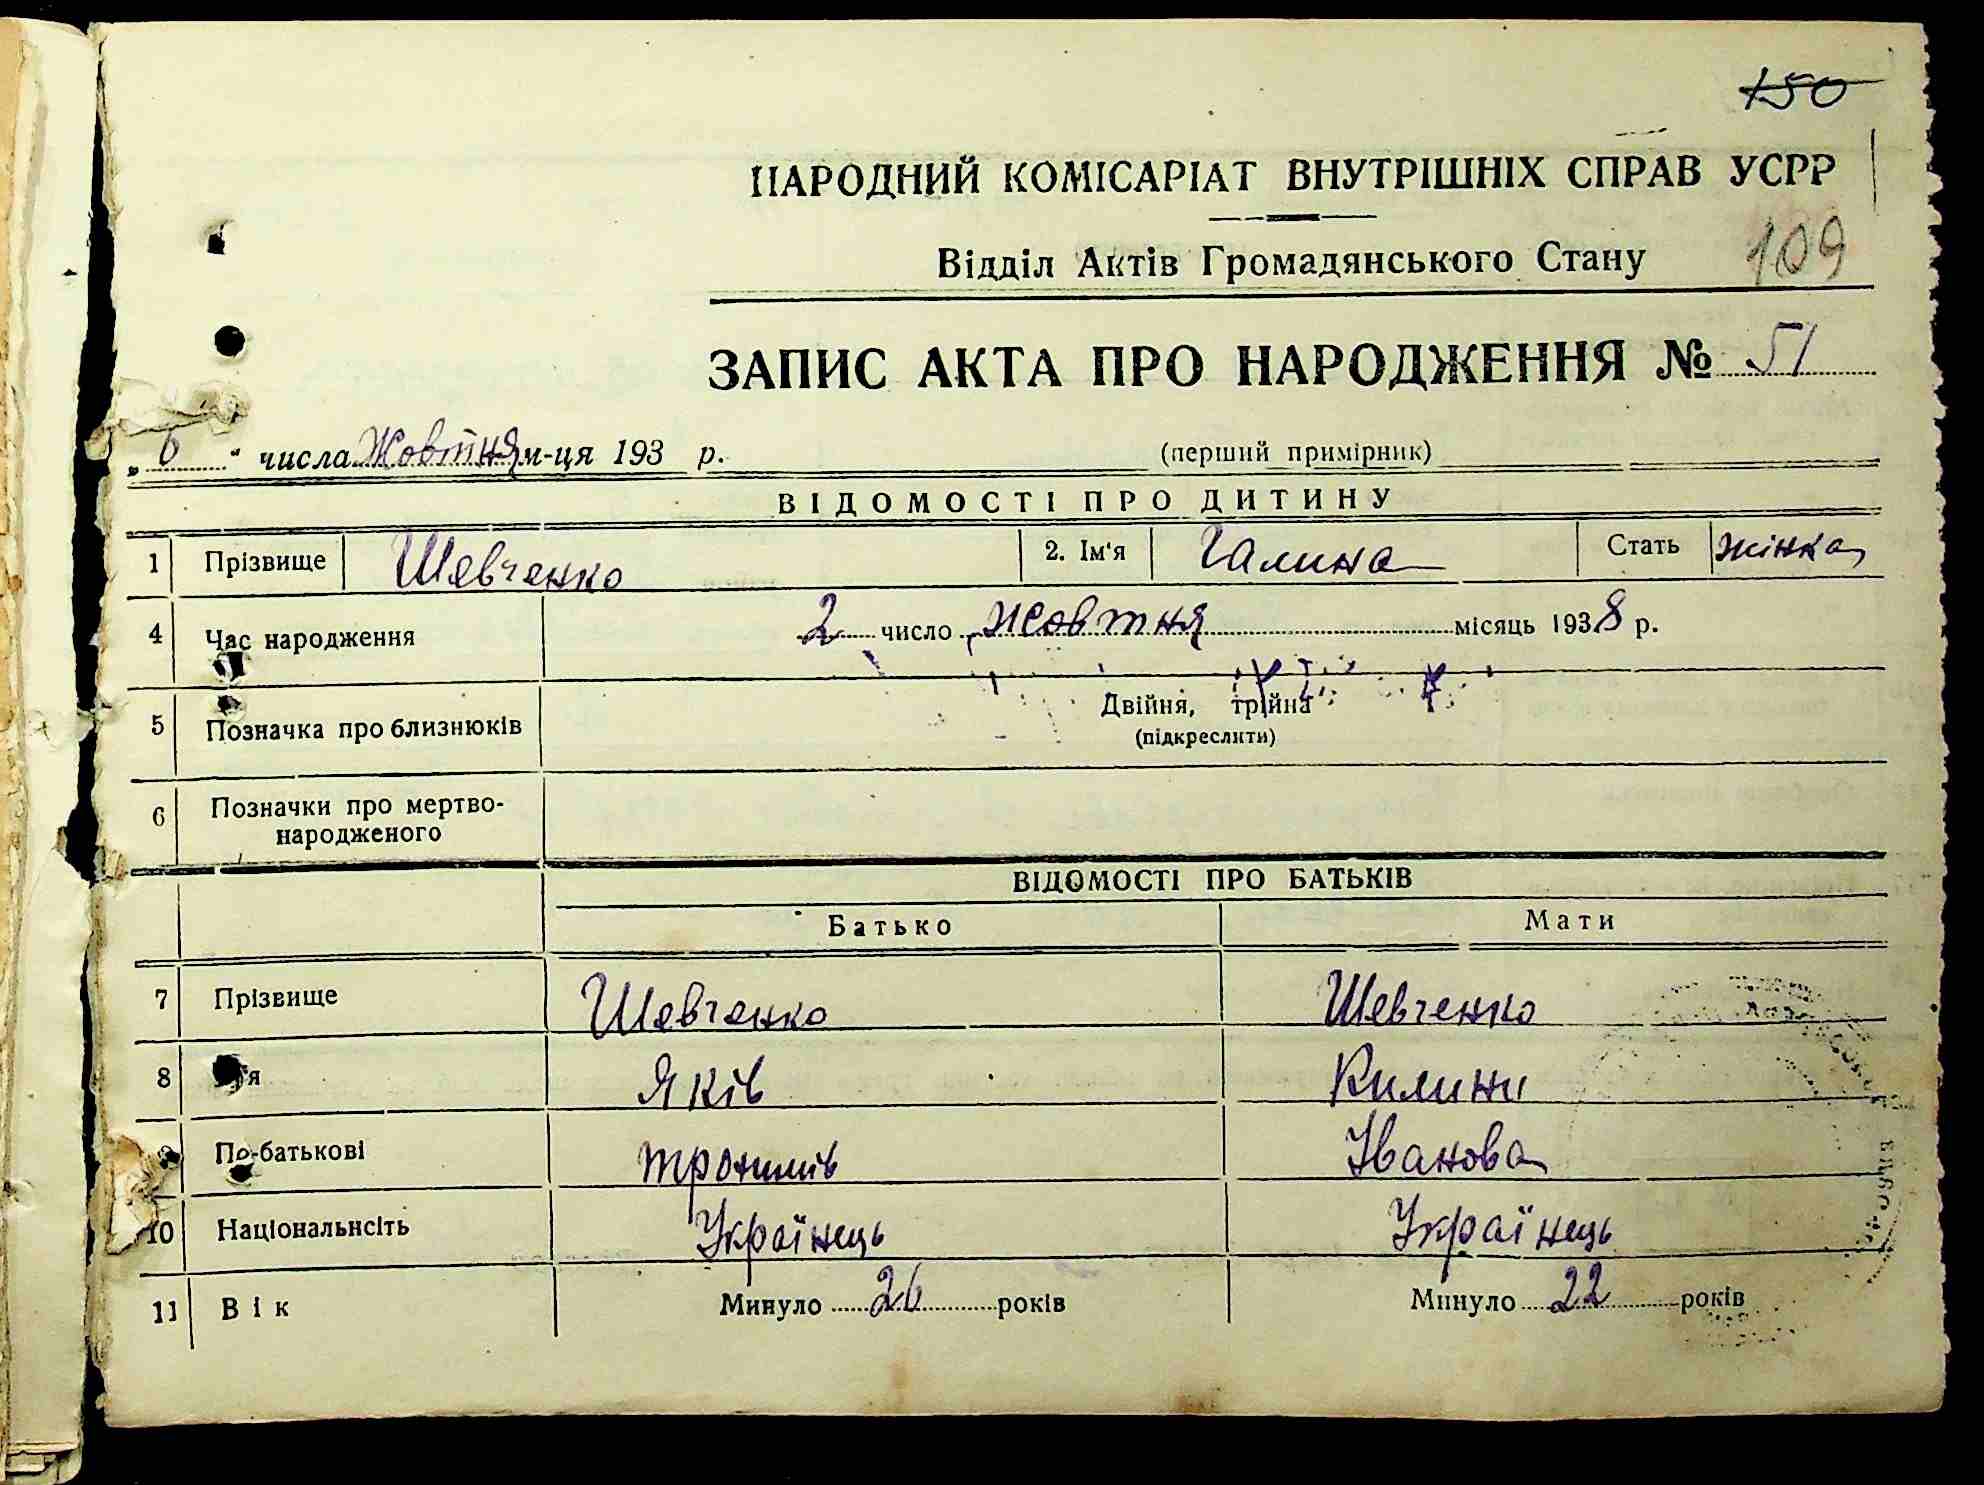 150
НАРОДНИЙ КОМІСАРІАТ ВНУТРІШНІХ СПРАВ УСРР
Відділ Актів Громадянського Стану 109
ЗАПИС АКТА ПРО НАРОДЖЕННЯ № 51
„ 6 “ числа Жовтня м-ця 193 р. (перший примірник)
ВІДОМОСТІ ПРО ДИТИНУ
1 Прізвище Шевченко 2. Ім'я Галина Стать жінка
4 Час народження 2 число жовтня місяць 1938 р.
5 Позначка про близнюків Двійня, трійня
(підкреслити)
6 Позначки про мертво-
народженого
ВІДОМОСТІ ПРО БАТЬКІВ
Батько Мати
7 Прізвище Шевченко Шевченко
8 Яків Килини
9 По-батькові Іванова
10 Національнсіть Українець Українець
11 Вік Минуло 26 років Минуло 22 років